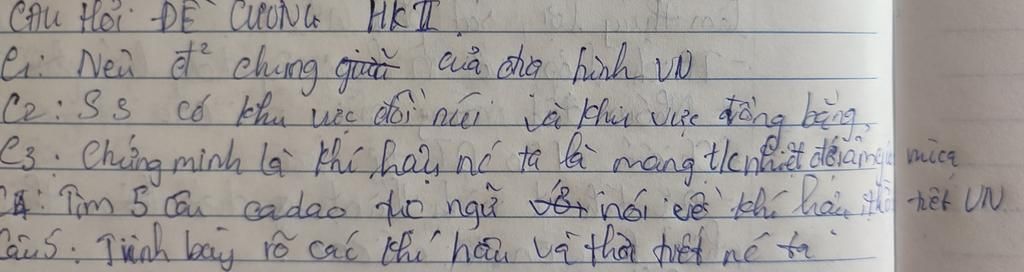 CÂU HỎI ĐỀ CƯƠNG HKII
C1: Nêu đ² chung của địa hình VN
C2: SS có khu vực đồi núi và khu vực đồng bằng
C3. Chứng minh là khí hậu nc ta là mang t/c nhiệt đới ẩm gió mùa
C4: Tìm 5 câu cadao tục ngữ nói về khí hậu thời tiết VN
Câu 5: Trình bày rõ các khí hậu và thời tiết nc ta